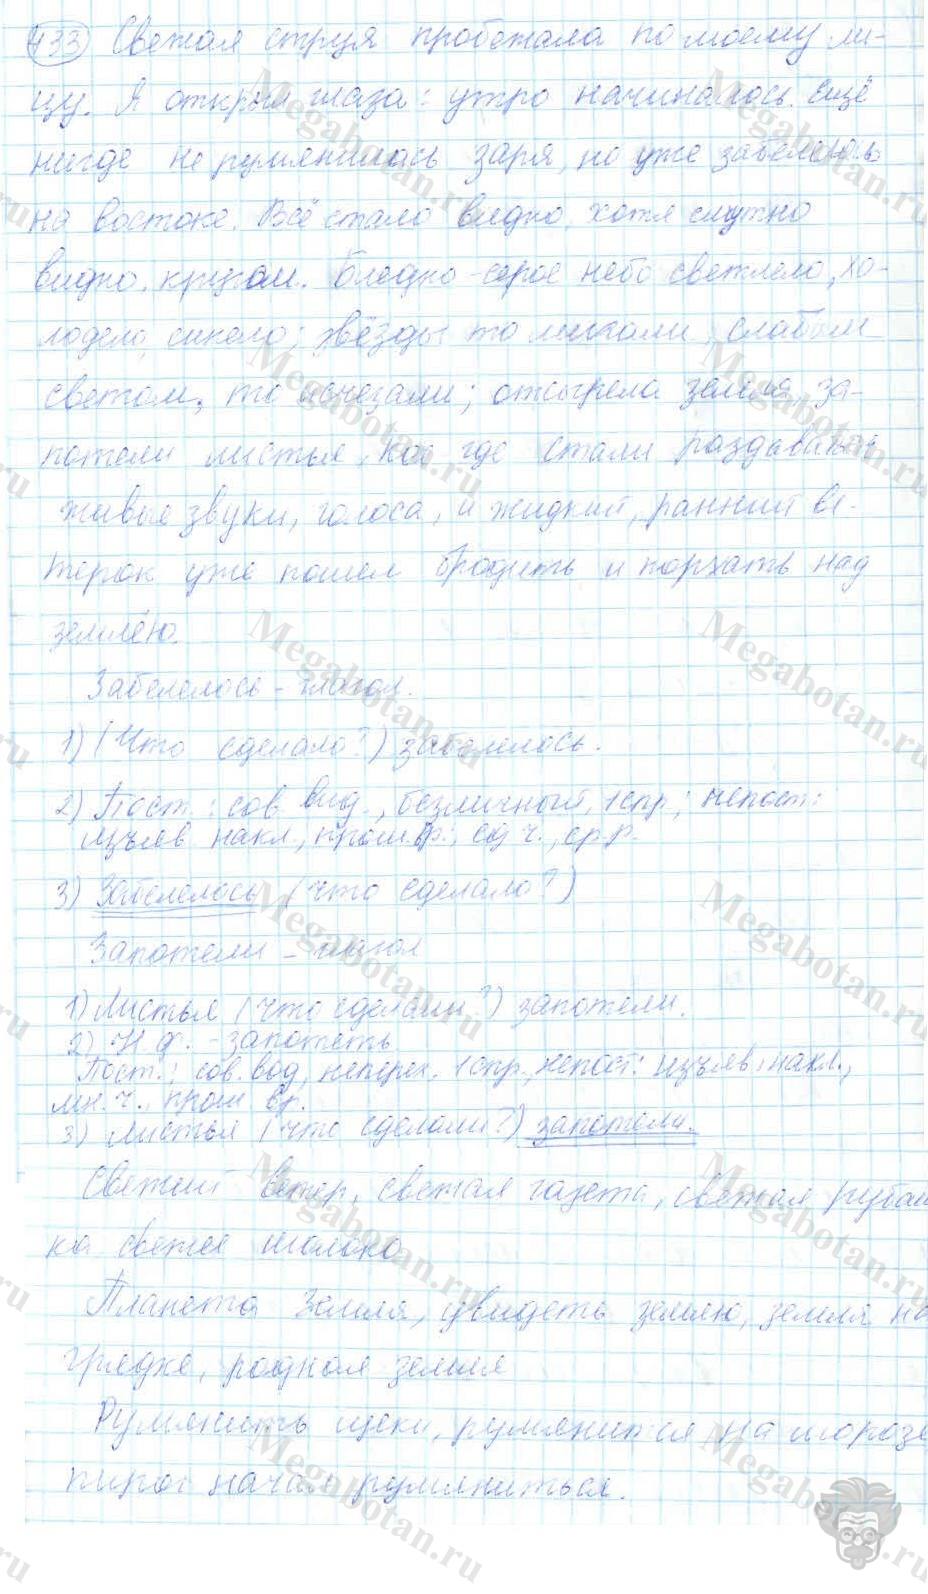 433 Свежая струя пробежала по моему ли-
цу. Я открыл глаза: утро начиналось. Ещё
нигде не румянилась заря, но уже забелелось
на востоке. Всё стало видно, хотя смутно
видно, кругом. Бледно-серое небо светлело, хо-
лодело, синело; звёзды то мигали слабым
светом, то исчезали; отсырела земля, за-
потели листья, кое где стали раздаваться
живые звуки, голоса, и жидкий, ранний ве-
терок уже пошел бродить и порхать над
землёю.
Забелелось - глагол.
1) (Что сделало?) забелелось.
2) Пост.: сов. вид., безличный, 1 спр.; непост:
изъяв. накл., прош. вр., ед ч., ср р.
3) Забелелось (что сделало?)
Запотели - глагол
1) Листья (что сделали?) запотели.
2) Н. ф. - запотеть
Пост.: сов. вод, неперех. 1 спр., непост: изъяв. накл.,
мн. ч., прош вр.
3) Листья (что сделали?) запотели.
Свежий ветер, свежая газета, свежая рубаш
ка свежее молоко
Планета Земля, увидеть землю, земля на
грядке, родная земля
Румянить щеки, румянится на морозе
пирог начал румяниться.
Megabotan.ru